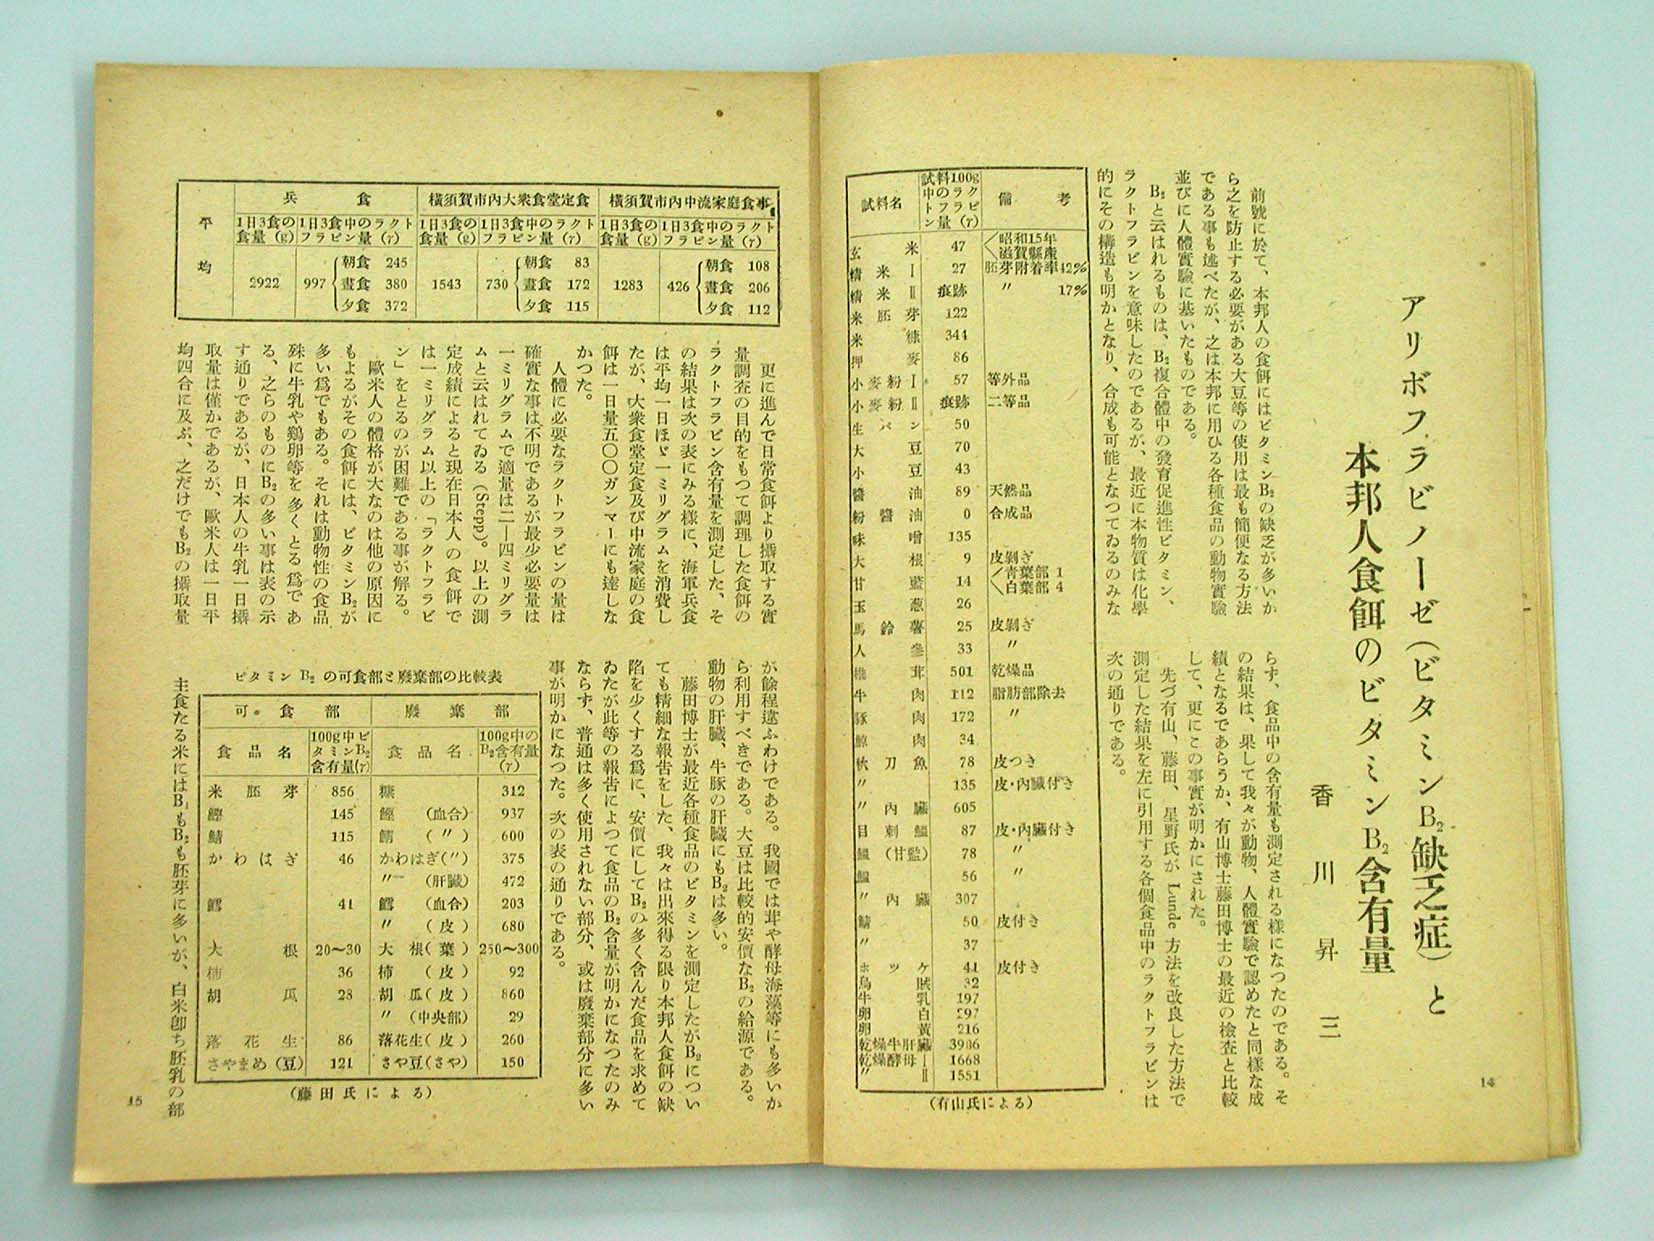 アリボフラビノーゼ(ビタミンB₂缺乏症)と
本邦人食餌のビタミンB₂含有量
香川昇三
前號に於て、本邦人の食餌にはビタミンB₂の缺乏が多いか
ら之を防止する必要がある大豆等の使用は最も簡便なる方法
である事も述べたが、之は本邦に用ひる各種食品の動物實驗
並びに人體實驗に基いたものである。
B₂と云はれるものは、B₂複合體中の發育促進性ビタミン、
ラクトフラビンを意味したのであるが、最近に本物質は化學
的にその構造も明かとなり、合成も可能となつてゐるのみな
らず、食品中の含有量も測定される樣になつたのである。そ
の結果は、果して我々が動物、人體實驗で認めたと同樣な成
績となるであらうか、有山博士藤田博士の最近の檢査と比較
して、更にこの事實が明かにされた。
先づ有山、藤田、星野氏が Lunde 方法を改良した方法で
測定した結果を左に引用する各個食品中のラクトフラビンは
次の通りである。
試料名 試料100g中のラクトフラビン量(γ) 備考
玄米 47 昭和15年滋賀縣産
精米Ⅰ 27 胚芽附着率42%
精米Ⅱ 痕跡 〃 17%
米胚芽 122
米糠 344
押麥 86
小麥粉Ⅰ 57 等外品
小麥粉Ⅱ 痕跡 二等品
生パン 50
大豆 70
小豆 43
醬油 89 天然品
粉醬油 0 合成品
味噌 135
大根 9 皮剝ぎ
甘藍 14 青葉部 1 白葉部 4
玉葱 26
馬鈴薯 25 皮剝ぎ
人參 33 〃
椎茸 501 乾燥品
牛肉 112 脂肪部除去
豚肉 172 〃
鯨肉 34
秋刀魚 78 皮つき
〃 135 皮・內臟付き
〃內臟 605
目刺鰮 87 皮・內臟付き
鰮(甘監) 78 〃
鰮 56 〃
〃內臟 307
鯖 50 皮付き
〃 37
ホツケ 41 皮付き
烏賊 32
牛乳 197
卵白 297
卵黃 216
乾燥牛肝臟 3906
乾燥酵母Ⅰ 1668
〃Ⅱ 1551
(有山氏による)
14
平均
兵食 橫須賀市內大衆食堂定食 橫須賀市內中流家庭食事
1日3食の食量(g) 1日3食中のラクトフラビン量(γ) 1日3食の食量(g) 1日3食中のラクトフラビン量(γ) 1日3食の食量(g) 1日3食中のラクトフラビン量(γ)
2922 997 朝食 245 晝食 380 夕食 372 1543 730 朝食 83 晝食 172 夕食 115 1283 426 朝食 108 晝食 206 夕食 112
更に進んで日常食餌より攝取する實
量調査の目的をもつて調理した食餌の
ラクトフラビン含有量を測定した、そ
の結果は次の表にみる樣に、海軍兵食
は平均一日ほゞ一ミリグラムを消費し
たが、大衆食堂定食及び中流家庭の食
餌は一日量五〇〇ガンマーにも達しな
かつた。
人體に必要なラクトフラビンの量は
確實な事は不明であるが最少必要量は
一ミリグラムで適量は二—四ミリグラ
ムと云はれてゐる(Stepp)。以上の測
定成績によると現在日本人の食餌で
は一ミリグラム以上の「ラクトフラビ
ン」をとるのが困難である事が解る。
歐米人の體格が大なのは他の原因に
もよるがその食餌には、ビタミンB₂が
多い爲でもある。それは動物性の食品
殊に牛乳や鷄卵等を多くとる爲であ
る、之らのものにB₂の多い事は表の示
す通りであるが、日本人の牛乳一日攝
取量は僅かであるが、歐米人は一日平
均四合に及ぶ、之だけでもB₂の攝取量
が餘程違ふわけである。我國では茸や酵母海藻等にも多いか
ら利用すべきである。大豆は比較的安價なB₂の給源である。
動物の肝臟、牛豚の肝臟にもB₂は多い。
藤田博士が最近各種食品のビタミンを測定したがB₂につい
ても精細な報告をした、我々は出來得る限り本邦人食餌の缺
陷を少くする爲に、安價にしてB₂の多く含んだ食品を求めて
ゐたが此等の報告によつて食品のB₂含量が明かになつたのみ
ならず、普通は多く使用されない部分、或は廢棄部分に多い
事が明かになつた。次の表の通りである。
ビタミン B₂ の可食部と廢棄部の比較表
可食部 廢棄部
食品名 100g中ビタミンB₂含有量(γ) 食品名 100g中のB₂含有量(γ)
米胚芽 856 糠 312
鰹 145 鰹(血合) 937
鯖 115 鯖(〃) 600
かわはぎ 46 かわはぎ(〃) 375
〃(肝臟) 472
鱈 41 鱈(血合) 203
〃(皮) 680
大根 20〜30 大根(葉) 250〜300
柿 36 柿(皮) 92
胡瓜 28 胡瓜(皮) 860
〃(中央部) 29
落花生 86 落花生(皮) 260
さやまめ(豆) 121 さや豆(さや) 150
(藤田氏による)
主食たる米にはB₁もB₂も胚芽に多いが、白米卽ち胚乳の部
15